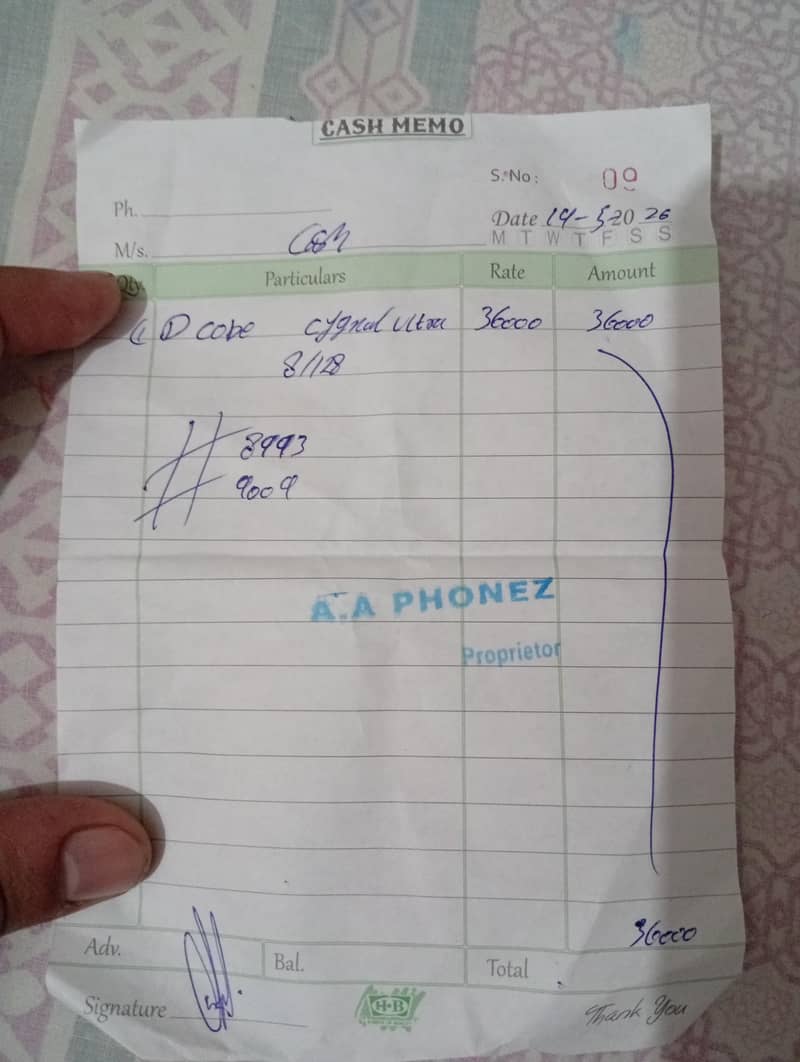 CASH MEMO
S.No: 09
Ph.
Date 14-5-20 26
M/s. Cash
M T W T F S S
Qty. Particulars Rate Amount
1 Dcode Cygnal Ultra 36000 36000
8/128
# 8993
9009
A.A PHONEZ
Proprietor
36000
Adv. Bal. Total
Signature
H-B
Thank You